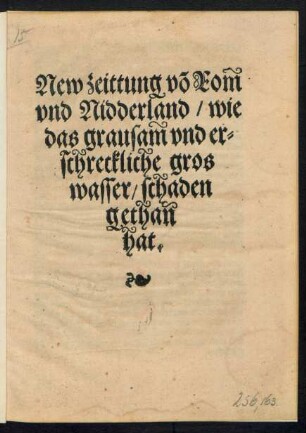 15
New zeittung võ Rom̃
vnd Nidderland / wie
das grausam̃ vnd er-
schreckliche gros
wasser / schaden
gethañ
hat.
256,163